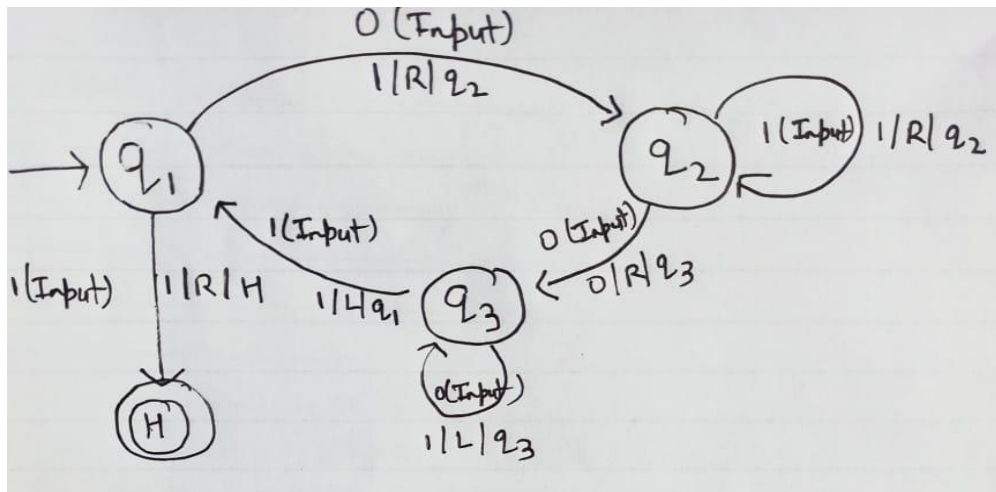 0 (Input)
1/R/q2
q1
q2
1 (Input) 1/R/q2
1 (Input)
0 (Input)
0/R/q3
1 (Input)
1/R/H
1/L/q1
q3
0 (Input)
1/L/q3
H